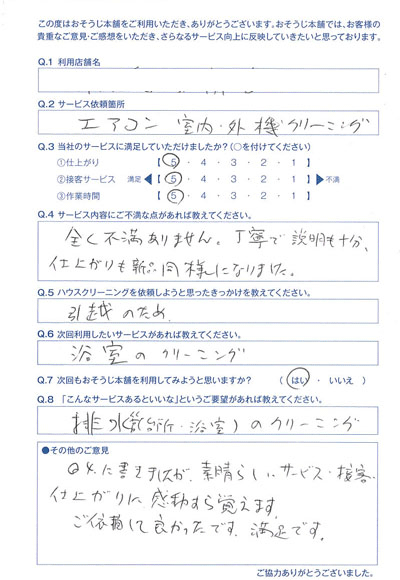 この度はおそうじ本舗をご利用いただき、ありがとうございます。おそうじ本舗では、お客様の
貴重なご意見・ご感想をいただき、さらなるサービス向上に反映していきたいと思っております。
Q.1 利用店舗名
Q.2 サービス依頼箇所
エアコン 室内・外機クリーニング
Q.3 当社のサービスに満足していただけましたか?(○を付けてください)
①仕上がり 【 5 ・ 4 ・ 3 ・ 2 ・ 1 】
②接客サービス 満足 ◀【 5 ・ 4 ・ 3 ・ 2 ・ 1 】▶ 不満
③作業時間 【 5 ・ 4 ・ 3 ・ 2 ・ 1 】
Q.4 サービス内容にご不満な点があれば教えてください。
全く不満ありません。丁寧で説明も十分、
仕上がりも新品同様になりました。
Q.5 ハウスクリーニングを依頼しようと思ったきっかけを教えてください。
引越のため
Q.6 次回利用したいサービスがあれば教えてください。
浴室のクリーニング
Q.7 次回もおそうじ本舗を利用してみようと思いますか? ( はい ・ いいえ )
Q.8 「こんなサービスあるといいな」というご要望があれば教えてください。
排水(台所・浴室)のクリーニング
●その他のご意見
Q4.に書きましたが、素晴らしいサービス・接客
仕上がりに感動すら覚えます。
ご依頼して良かったです。満足です。
ご協力ありがとうございました。